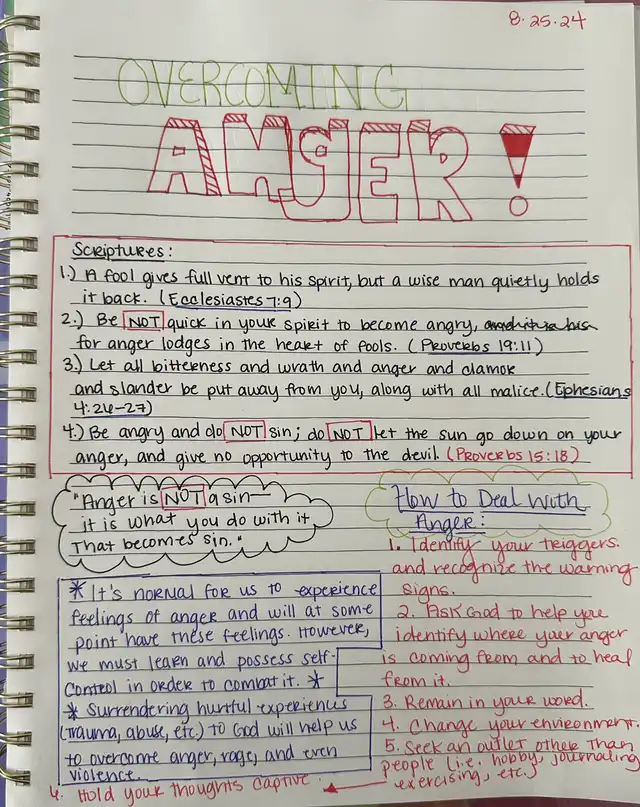 8.25.24
OVERCOMING
ANgER!
Scriptures:
1.) A fool gives full vent to his spirit, but a wise man quietly holds
it back. (Ecclesiastes 7:9)
2.) Be NOT quick in your spirit to become angry,
for anger lodges in the heart of fools. (Proverbs 19:11)
3.) Let all bitterness and wrath and anger and clamor
and slander be put away from you, along with all malice. (Ephesians
4:26-27)
4.) Be angry and do NOT sin; do NOT let the sun go down on your
anger, and give no opportunity to the devil. (Proverbs 15:18)
"Anger is NOT a sin—
it is what you do with it
that becomes sin."
* It's normal for us to experience
feelings of anger and will at some
point have these feelings. However,
we must learn and possess self-
control in order to combat it. *
* Surrendering hurtful experiences
(trauma, abuse, etc.) to God will help us
to overcome anger, rage, and even
violence.
How to Deal With
Anger:
1. Identify your triggers
and recognize the warning
signs.
2. Ask God to help you
identify where your anger
is coming from and to heal
from it.
3. Remain in your word.
4. Change your environment.
5. Seek an outlet other than
people (i.e. hobby, journaling
exercising, etc.)
6. Hold your thoughts captive